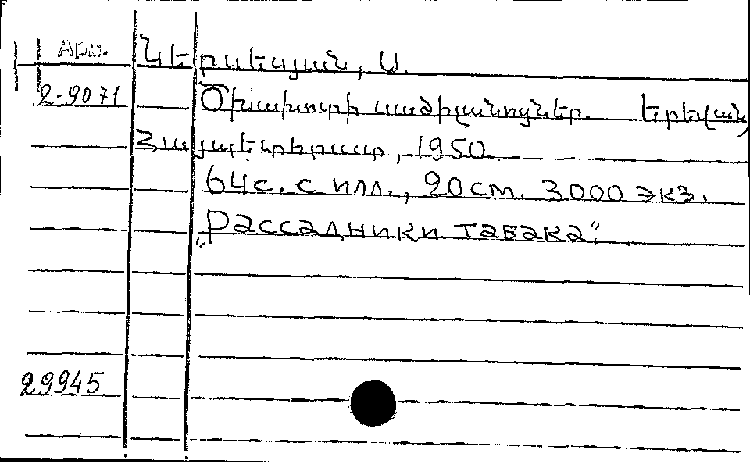 Арм. Ներսեսյան, Ս.
2-9071 Ծխախոտի սածիլանոցներ. Երևան,
Հայպետհրատ, 1950.
64с. с илл., 20см. 3000 экз.
„Рассадники табака".
29945